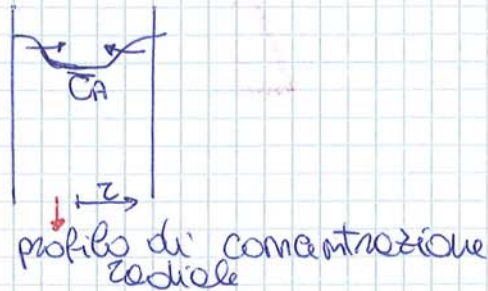 C̅A
r
profilo di concentrazione
radiale